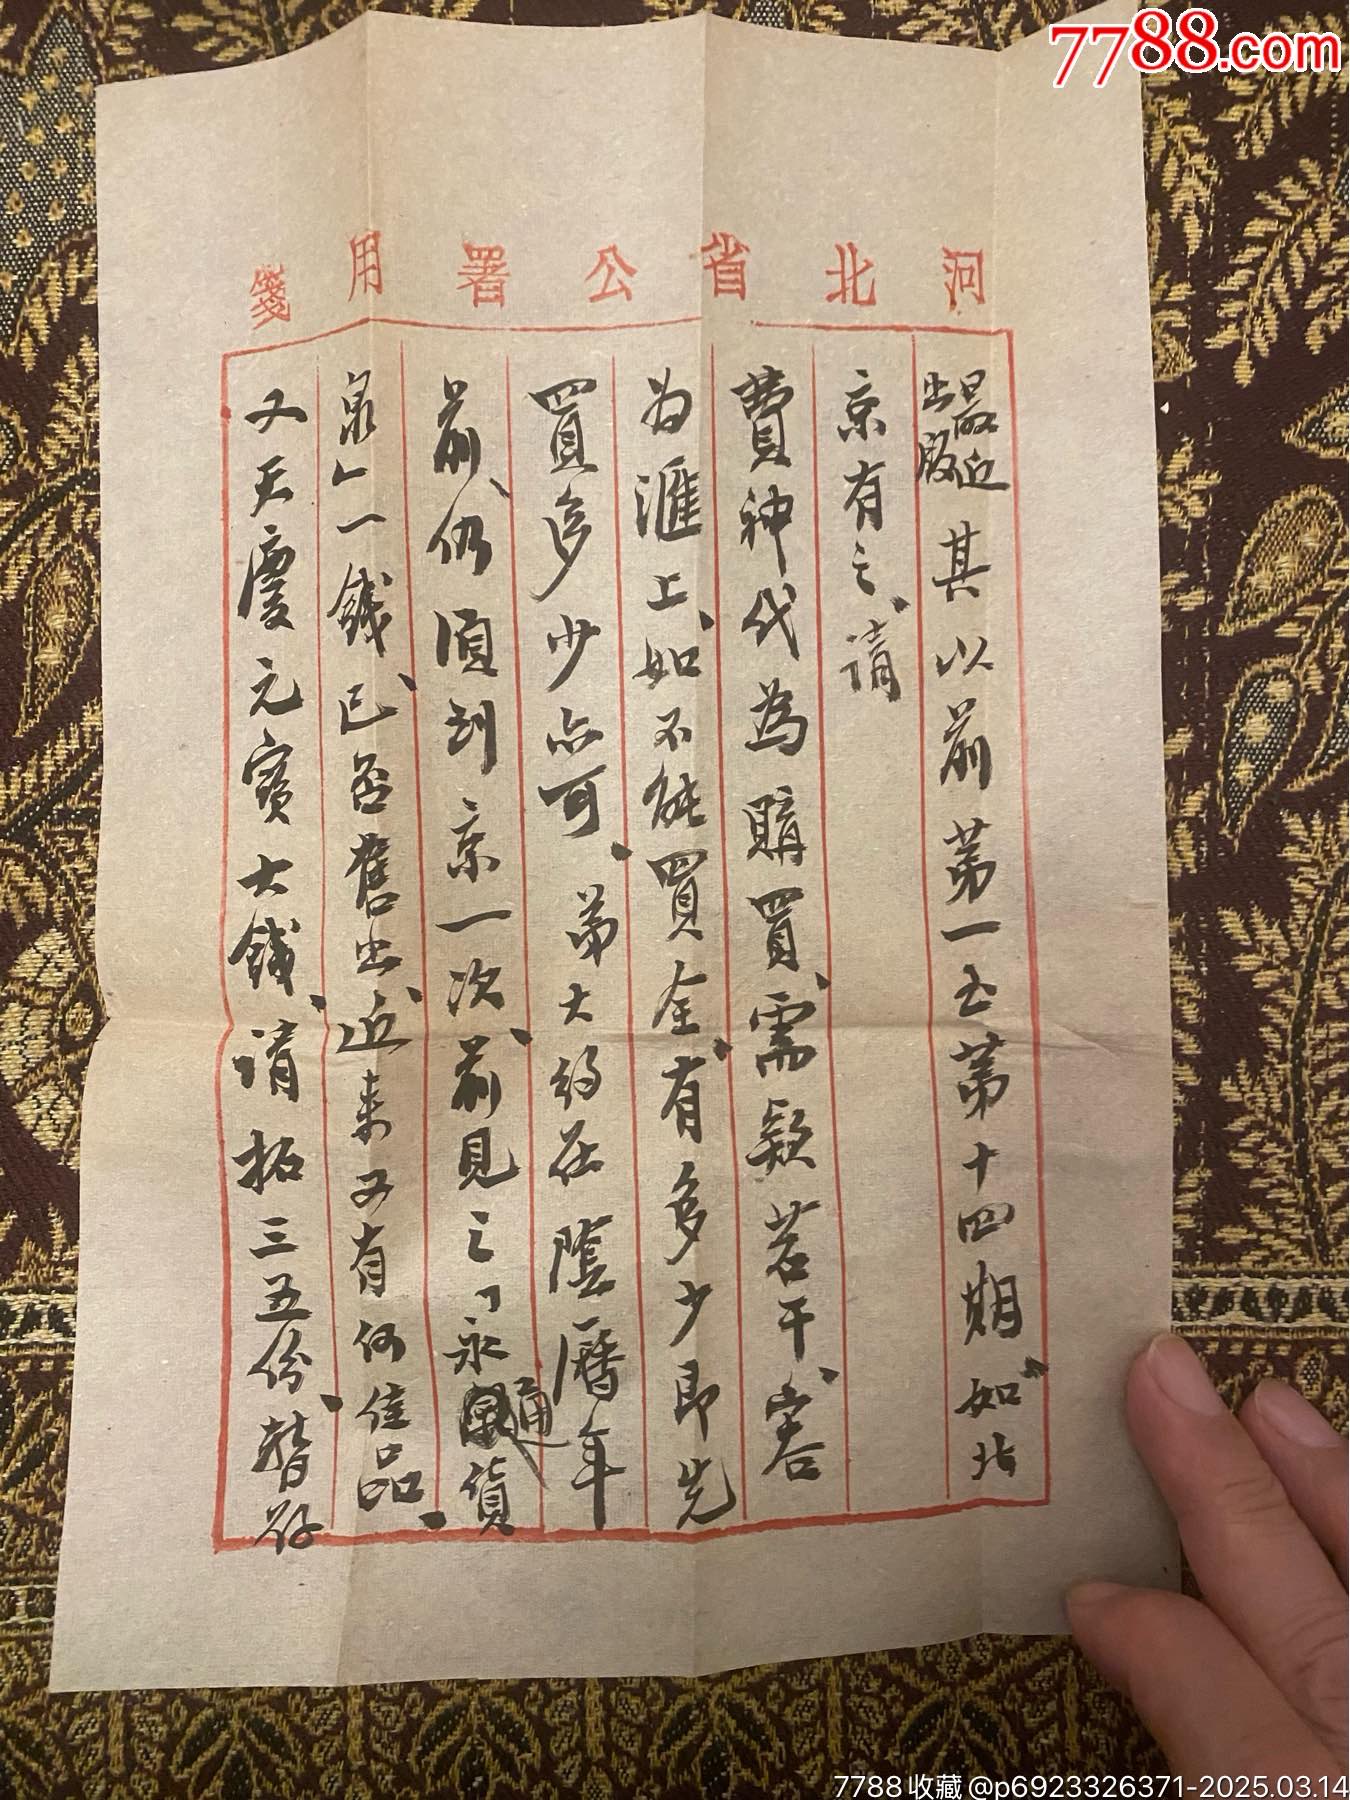 7788.com
河北省公署用箋
最近出版其以前第一至第十四期、如北
京有之、請
費神代為購買、需款若干、容
為滙上、如不能買全、有多少即先
買多少亦可、弟大約在陰曆年
前、仍須到京一次、前見之「永通貨
泉」一錢、已否售出、近来又有何佳品、
又天慶元寶大錢、請拓三五份、暫存
7788收藏@p6923326371-2025.03.14